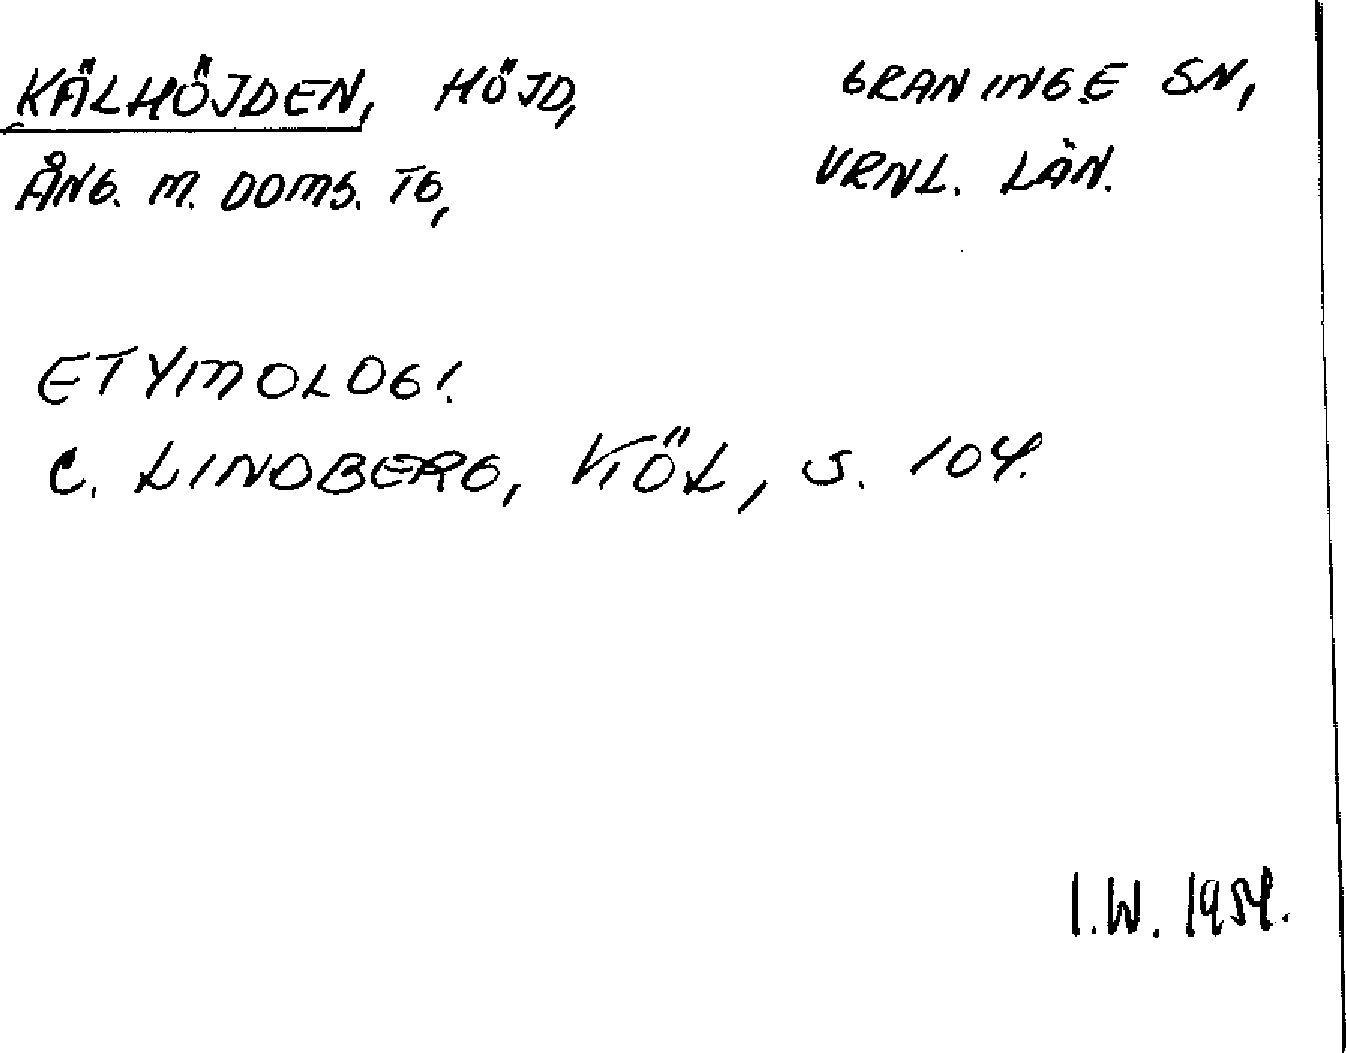 KÄLHÖJDEN, HÖJD, GRANINGE SN,
ÅNG. M. DOMS. TG, VRNL. LÄN.
ETYMOLOGI.
C. LINDBERG, KÖL, S. 104.
I.W. 1954.